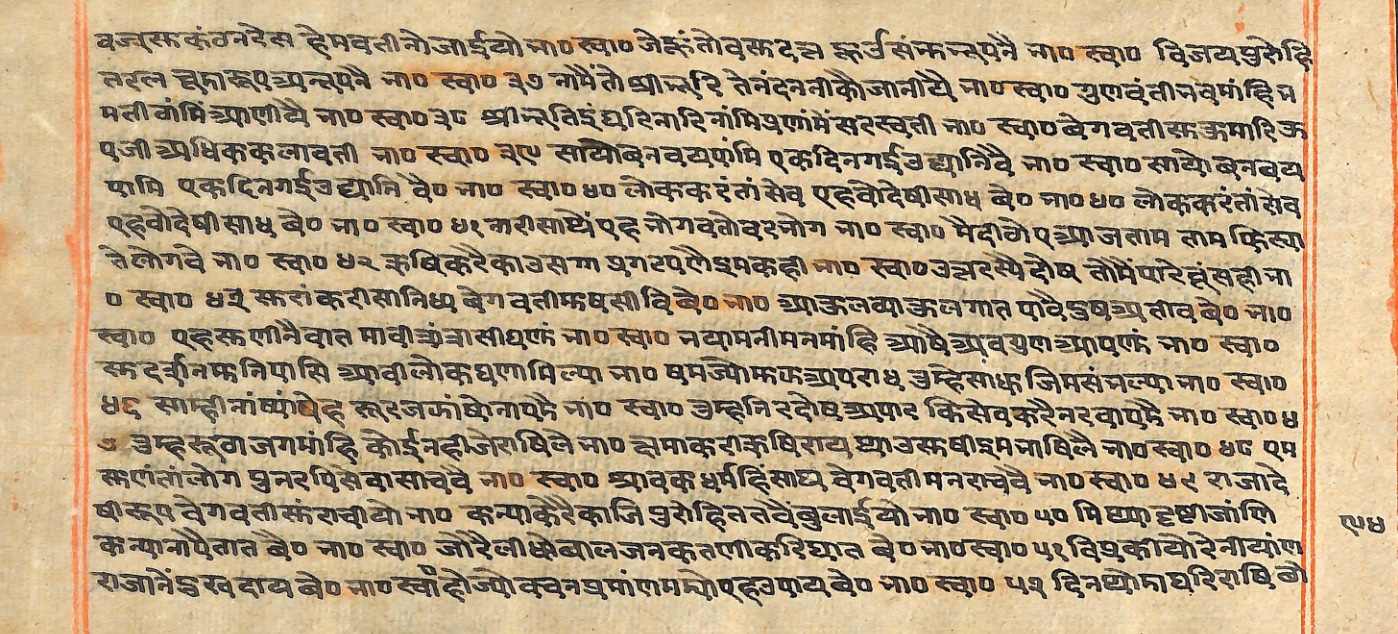 वज्वस्क कंठ नरेस हेमवतीनो जाईयो ना० स्वा० जे ऊंतोवस्क दत्त ऊउं संऊ नृपनै ना० स्वा० विजय पुरोहि
तरल चूदास्कए श्रनृपनै ना० स्वा० ३७ नामैं तो श्री नृरि तेनंदन नीकौ जानीयै ना० स्वा० गुणवंती नवमांहि म
मती वांमिं आणीयै ना० स्वा० ३८ श्री नृति इं घरि नारि नांमि प्रणांमें सरस्वती ना० स्वा० वेगवती स्कऊमारि ऊ
एजी अधिक कलावती ना० स्वा० ३९ सा यौवन वय पांमि एक दिन गई उद्यानि वै ना० स्वा० सा यो बन वय
पामि एक दिन गई उद्यानि वै० ना० स्वा० ४० लोक करंतां सेव एहवो देषी साध बै० ना० ४० लोक करंतां सेव
एहवो देषी साध बै० ना० स्वा० ४१ नारी साथें एह नोगवतो वर नोग ना० स्वा० मै दीठो ए आज ताम ताम फिस्वा
ते लोग वे ना० स्वा० ४२ ऋषि करै काउसग्ग प्रगटपणै इम कही ना० स्वा० उत्तरस्यै दोष तो मैं पारेवूं सही ना
० स्वा० ४३ स्कतां करी सानिध्य वेगवती मुष सीवि बै० ना० आऊल व्याऊल गात पावै इष अतीव बे० ना०
स्वा० एह स्कणीनै वात मावीत्रां त्रासी घणुं ना० स्वा० नयामनी मनमांहि आषै अवगुण आपणुं ना० स्वा०
स्कदर्शन मुनि पासि आवी लोक घणा मिल्या ना० षमज्यो मुऊ अपराध तुम्हे साधु जिम संनल्या ना० स्वा०
४६ साम्ही नांष्यां षेह सूरज कां षो ना पमै ना० स्वा० तुम्ह निरदोष अपार कि सेव करै नर वापमै ना० स्वा० ४
७ तुम्ह रूठा जगमांहि कोई नही जे राषिलै ना० क्षमा करी ऋषिराय थाउ स्कषी इम नाषिलै ना० स्वा० ४८ एम
स्कणंतां लोग पुनरपि सेवा साचवै ना० स्वा० श्रावक धर्म हिं साध वेगवती मन राचवै ना० स्वा० ४९ राजा दे
षी रूप वेगवती स्कं राचीयो ना० कन्या कैरै काजि पुरोहित तवें बुलाईयो ना० स्वा० ५० मिथ्या दृष्टी जांणि
कन्या नापै तात बै० ना० स्वा० जोरै लीधो बाल जनक तणी करि घात बे० ना० स्वा० ५१ विप्र कीयो रे नीयांण
राजानें दुख दाय बे० ना० स्वा० हो ज्यो वचन प्रमांण मम्मो एह उपाय बे० ना० स्वा० ५२ दिन थोमा घरि राषि वो
९५४